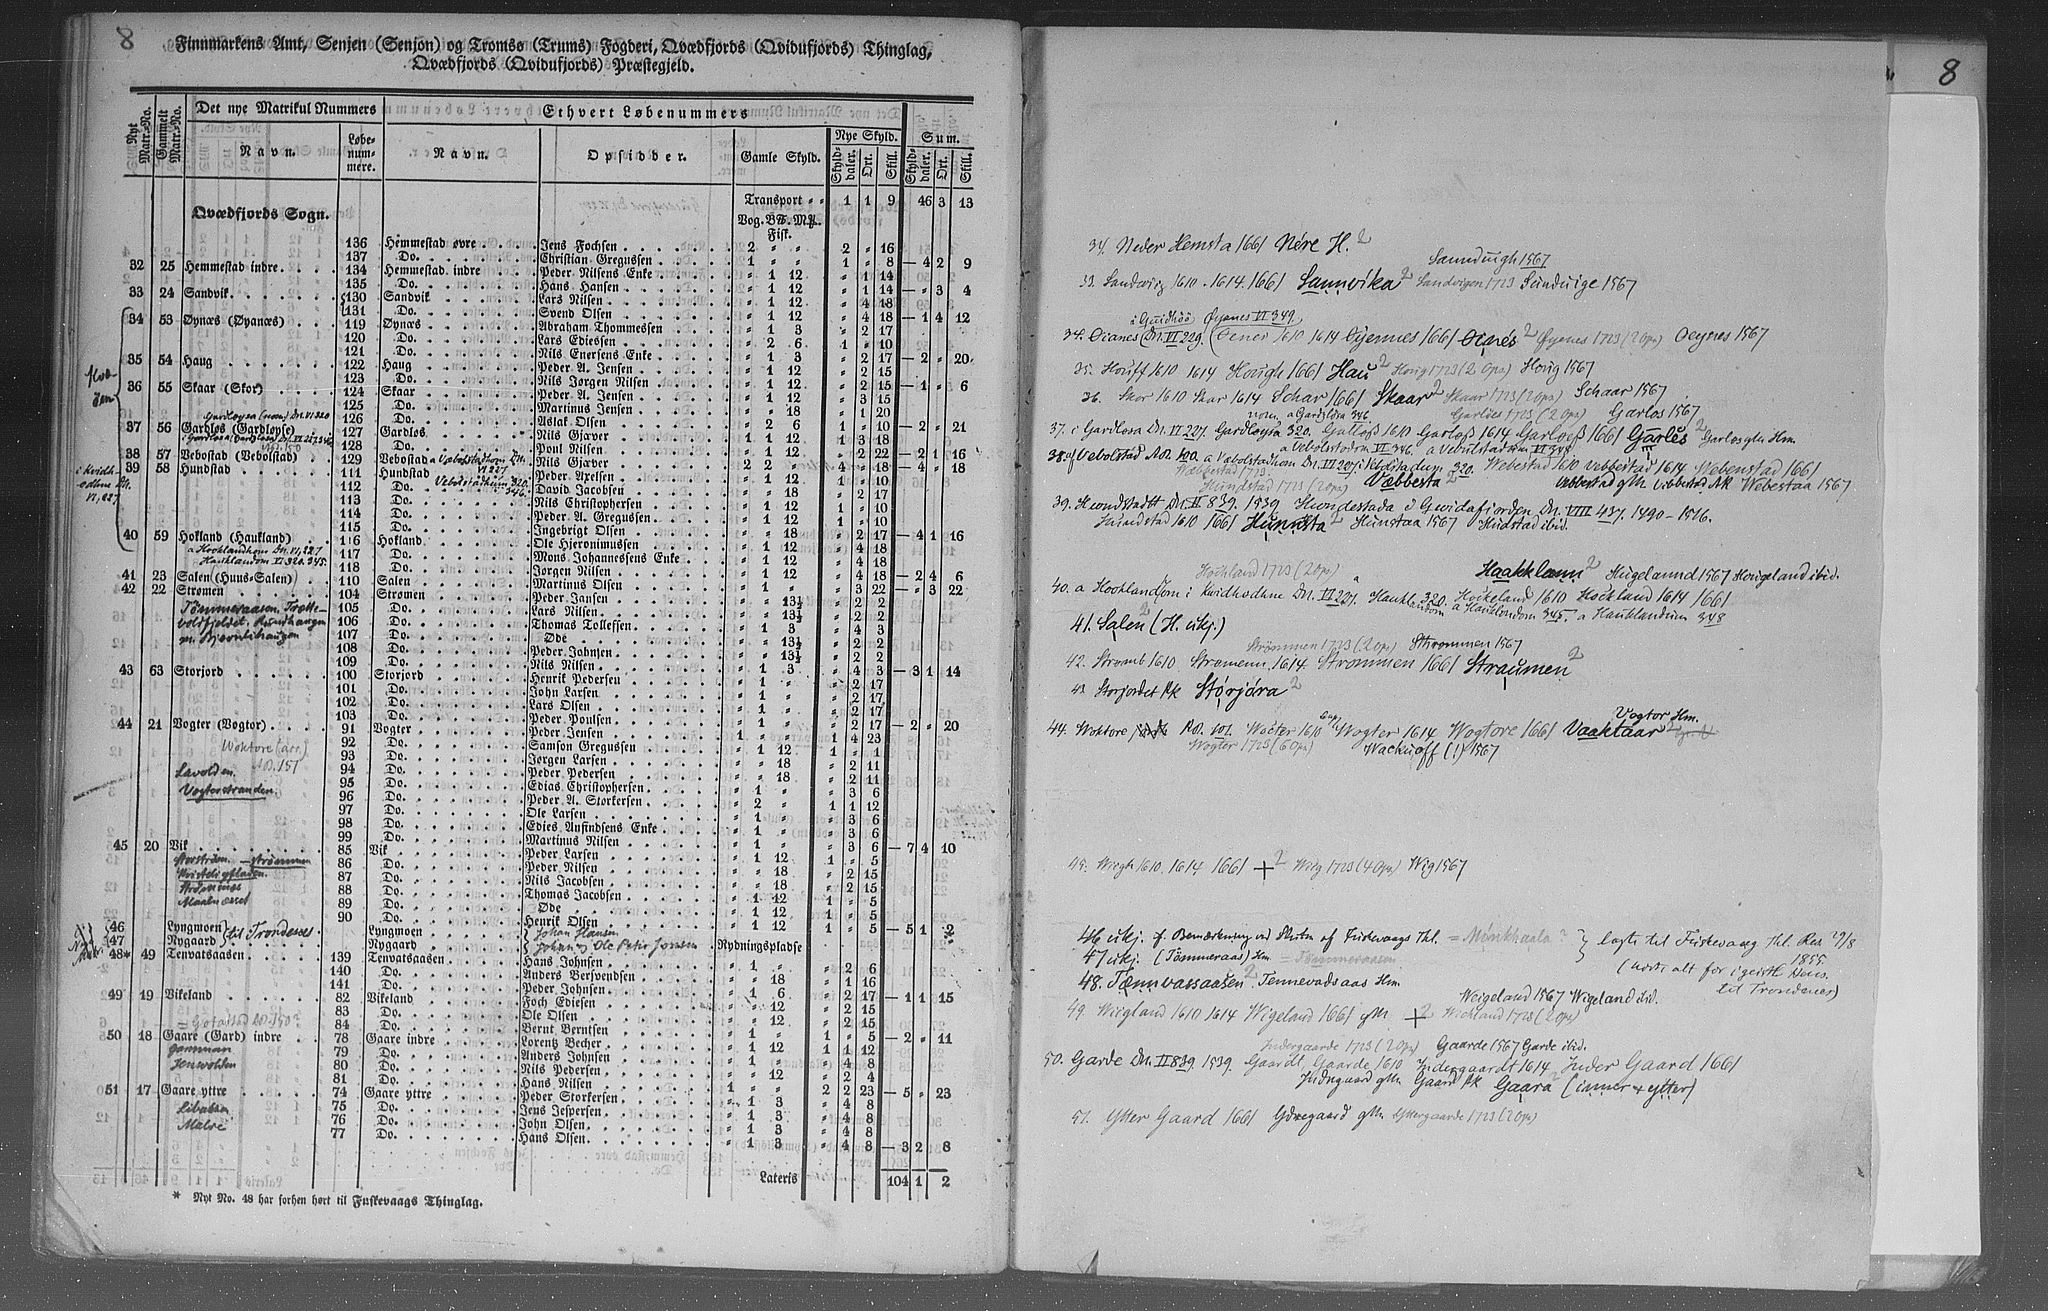 8
Finnmarkens Amt, Senjen (Senjon) og Tromsø (Trums) Fogderi, Qvædfjords (Qvidufjords) Thinglag,
Qvædfjords (Qvidufjords) Præstegjeld.
Nyt Matr.-No. Gammelt Matr.-No. Det nye Matrikul Nummers Ethvert Løbenummers
Navn. Løbe-num-mere. Navn. Opsidder. Gamle Skyld. Nye Skyld. Sum.
Skyld-daler. Ort. Skill. Skyld-daler. Ort. Skill.
Transport „ „ 1 1 9 46 3 13
Qvædfjords Sogn. Vog. B℔. Mℊ. Fisk.
136 Hemmestad øvre Jens Fochsen 2 „ „ 2 „ 16
137 Do. Christian Gregussen 1 „ „ 1 „ 8 — 4 2 9
32 25 Hemmestad indre 134 Hemmestad indre Peder Nilsens Enke „ 1 12 „ 1 14
135 Do. Hans Hansen „ 1 12 „ 1 14 — „ 3 4
33 24 Sandvik 130 Sandvik Lars Nilsen „ 1 12 „ 4 18
131 Do. Svend Olsen „ 1 12 „ 4 18 — 1 4 12
34 53 Øynæs (Øyanæs) 119 Øynæs Abraham Thommesen „ 1 3 „ 2 17
120 Do. Lars Ediesen „ 2 6 „ 1 „ 10
121 Do. Nils Enersens Enke „ 1 3 „ 2 17 — 2 „ 20
35 54 Haug 122 Haug Peder A. Jensen „ 1 12 „ 2 15
123 Do. Nils Jørgen Nilsen „ 1 12 „ 2 15 — 1 „ 6
36 55 Skaar (Skor) 124 Skaar Peder A. Jensen „ 1 12 „ 3 15
125 Do. Martinus Jensen „ „ 18 „ 1 20
126 Do. Aslak Olsen „ 2 6 1 „ 10 — 2 „ 21
37 56 Gardløs (Gardloyse) 127 Gardløs Nils Gjæver „ 1 12 1 3 18
128 Do. Poul Nilsen „ 1 12 „ 2 22 — 2 1 16
38 57 Vebostad (Vebolstad) 129 Vebostad Nils Gjæver 2 2 „ 4 „ 18 — 4 „ 18
39 58 Hundstad 111 Hundstad Peder Axelsen „ 1 „ 1 „ 10
112 Do. David Jacobsen „ „ 18 „ 2 17
113 Do. Nils Christophersen „ 1 „ 1 „ 10
114 Do. Peder A. Gregussen „ 1 „ 1 „ 10
115 Do. Ingebrigt Olsen „ „ 18 „ 2 17 — 4 1 16
40 59 Hokland (Haukland) 116 Hokland Ole Hjeronimussen „ 1 12 „ 4 18
117 Do. Mons Johannessens Enke „ 1 12 „ 4 18
118 Do. Jørgen Nilsen „ 1 12 „ 4 18 — 2 4 6
41 23 Salen (Huus-Salen) 110 Salen Martinus Olsen „ 1 „ „ 3 22 — „ 3 22
42 22 Strømen 104 Strømen Peder Jansen „ „ 13½ „ 2 2
105 Do. Lars Nilsen „ „ 13½ „ 2 2
106 Do. Thomas Tollefsen „ 1 3 „ 4 3
107 Do. Øde „ „ 13½ „ 2 2
108 Do. Peder Jahnsen „ „ 13½ „ 2 2
109 Do. Nils Nilsen „ 1 3 „ 4 3 — 3 1 14
43 63 Storjord 100 Storjord Henrik Pedersen „ 1 „ „ 2 17
101 Do. John Larsen „ 1 „ „ 2 17
102 Do. Lars Olsen „ 1 „ „ 2 17
103 Do. Peder Poulsen „ 1 „ „ 2 17 — 2 „ 20
44 21 Vogter (Vogtor) 91 Vogter Peder Jensen „ 1 „ „ 4 23
92 Do. Samson Gregussen „ 1 12 1 „ 1
93 Do. Jørgen Larsen „ „ 18 „ 2 11
94 Do. Peder Pedersen „ „ 18 „ 2 11
95 Do. Edias Christophersen „ 1 „ „ 3 6
96 Do. Peder A. Storkersen „ 2 „ 1 1 12
97 Do. Ole Larsen „ 1 „ „ 3 6
98 Do. Edies Aufindsens Enke „ 1 „ „ 3 6
99 Do. Martinus Nilsen „ 1 „ „ 3 6 — 7 4 10
Lavolden.
Vogterstranden.
45 20 Vik 85 Vik Peder Larsen „ 1 12 1 „ 5
86 Do. Peder Nilsen „ „ 18 „ 2 15
87 Do. Nils Jacobsen „ „ 18 „ 2 15
88 Do. Thomas Jacobsen „ „ 18 „ 2 15
89 Do. Øde „ 1 12 1 „ 5
90 Do. Henrik Olsen „ 1 12 1 „ 5 — 5 1 12
46 Lyngmoen til Trondenes Lyngmoen Johan Hansen
47 Nygaard Nygaard Ole Peter Jonsen Rydningspladse
48* 49 Tenvatsaasen 139 Tenvatsaasen Hans Johnsen „ 1 „ „ 2 6
140 Do. Anders Bersvendsen „ „ 18 „ 1 16
141 Do. Peder Johnsen „ 1 6 „ 2 17 — 1 1 15
49 19 Vikeland 82 Vikeland Foch Ediesen „ „ 12 „ 2 15
83 Do. Ole Olsen „ „ 12 „ 2 15
84 Do. Bernt Berntsen „ 1 „ 1 „ 5 — 2 „ 11
50 18 Gaare (Gard) indre 78 Gaare indre Lorentz Becher „ 1 12 1 1 12
79 Do. Anders Johnsen „ 1 „ „ 4 8
80 Do. Nils Pedersen „ „ 12 „ 2 4
81 Do. Hans Nilsen 1 „ „ 2 2 23 — 5 „ 23
51 17 Gaare yttre 74 Gaare yttre Peder Storkersen „ 1 3 „ 4 8
75 Do. Jens Jespersen „ 1 3 „ 4 8
76 Do. John Olsen „ 1 3 „ 4 8
77 Do. Hans Olsen „ 1 3 „ 4 8 — 3 2 8
Lateris 104 1 2
* Nyt No. 48 har forhen hørt til Fuskevaags Thinglag.
8
34. Neder Hemsta 1661 Nére H. 2
Sanduigh 1567
33. Sandwig 1610. 1614. 1661 Sannvika 2 Sandvigen 1723 Sunduige 1567
i Guidhöö Øyenes VI 349.
34. Öianes Dn. VI 229. (Oenes 1610 1614 Øjennes 1661 2 Øyenes 1723 (2 ops) Oeynes 1567
35. Houff 1610 1614 Hough 1661 Hau 2 Houg 1723 (2 Ops) Houg 1567
36. Skor 1610 Skar 1614 Schar 1661 Skaar 2 Skaar 1723 (2 Ops) Schaar 1567
Garlies 1723 (2 Ops) Garlos 1567
37. i Gardlosa Dn. VI 227. Gardloysa 320. Gatloss 1610 Garloss 1614 Garloess 1661 Garlës 2
38. af Vebolstad AB. 100. a Vebolstadhom Dn. VI 227. Webestad 1610 Vebbestad 1614 Webenstad 1661
Hundstad 1723 (2 ops) Væbbesta 2 Webestaa 1567
39. Hwndstadt Dn. II 839. 1539. Hundestada i Gwidafjorden Dn. VIII 437. 1490-1516.
Hundstad 1610 1661 Hunnsta 2 Hunstaa 1567 Hudstad ibid.
Hochland 1723 (2 ops) Haakklann 2 Hugelannd 1567 Hougeland ibid.
40. a Hooklandom i Kvidhodhme Dn. VI 227. Haukland 320. Hockeland 1610 Hockland 1614 1661
a Hauklandom 345. a Hauklandum 348
41. Salen (H. ukj.)
Strømmen 1723 (2 ops) Strommen 1567
42. Stromb 1610 Stromenn 1614 Strommen 1661 Straumen 2
43. Storjordet Pk Stórjóra 2
Vogtor Hm.
44. Woktore AB. 101. Wacter 1610 Wogter 1614 Wogtore 1661 Vaaktaar 2
Wogter 1723 (6 ops) Wackuoff (!) 1567
45. Wiegh 1610. 1614 1661 + 2 Wiig 1723 (4 Ops) Wig 1567
46 ukj. f. Bemærkning ved Slutn. af Fuskevaags Thl. = Mönkhaala?
47 ukj. (Tömmeraas) Hm. = Tömmeraasen
lagte til Fuskevaag Thl. Res 29/8 1855
til Trondenes)
48. Tænnvassaasen 2. Tennevadsaas Hm.
Weigeland 1567 Wigeland ibid.
49. Wiegland 1610 1614 Wigeland 1661 gM. + 2 Wichland 1723 (2 ops)
Indergaarde 1723 (2 Ops) Gaarde 1567 Garde ibid.
50. Garde Dn. II 839. 1539. Gaardt, Gaarde 1610 Indergaardt 1614 Inder Gaard 1661
Indregaard gMn Gaard Pk Gaara 2 (inner + ytter)
51. Ytter Gaard 1661 Ydregaard gMn Yttergaarde 1723 (2 ops)